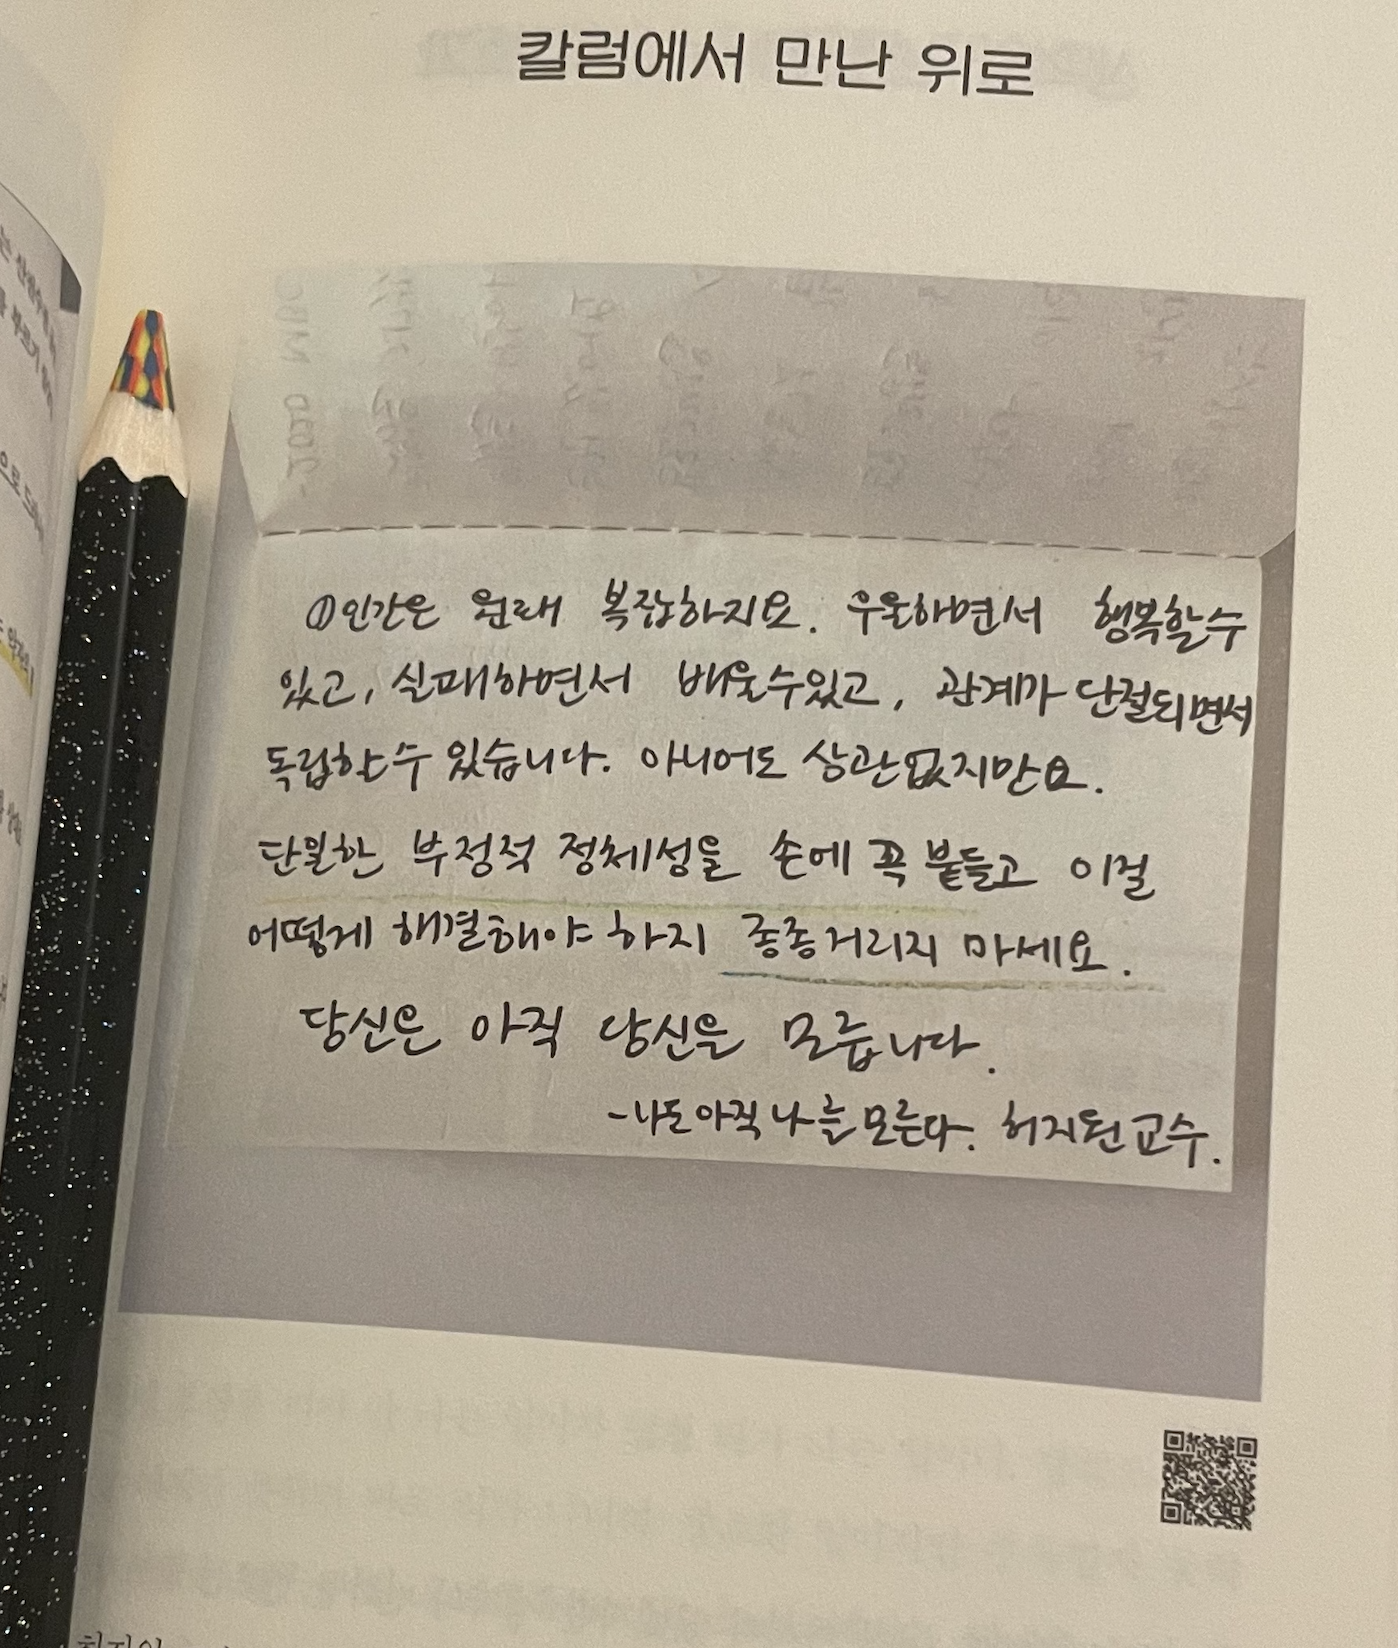 칼럼에서 만난 위로
①인간은 원래 복잡하지요. 우울하면서 행복할수
있고, 실패하면서 배울수있고, 관계가 단절되면서
독립할수 있습니다. 아니어도 상관없지만요.
단일한 부정적 정체성을 손에 꼭 붙들고 이걸
어떻게 해결해야 하지 종종거리지 마세요.
당신은 아직 당신을 모릅니다.
-나도 아직 나를 모른다. 허지원 교수.